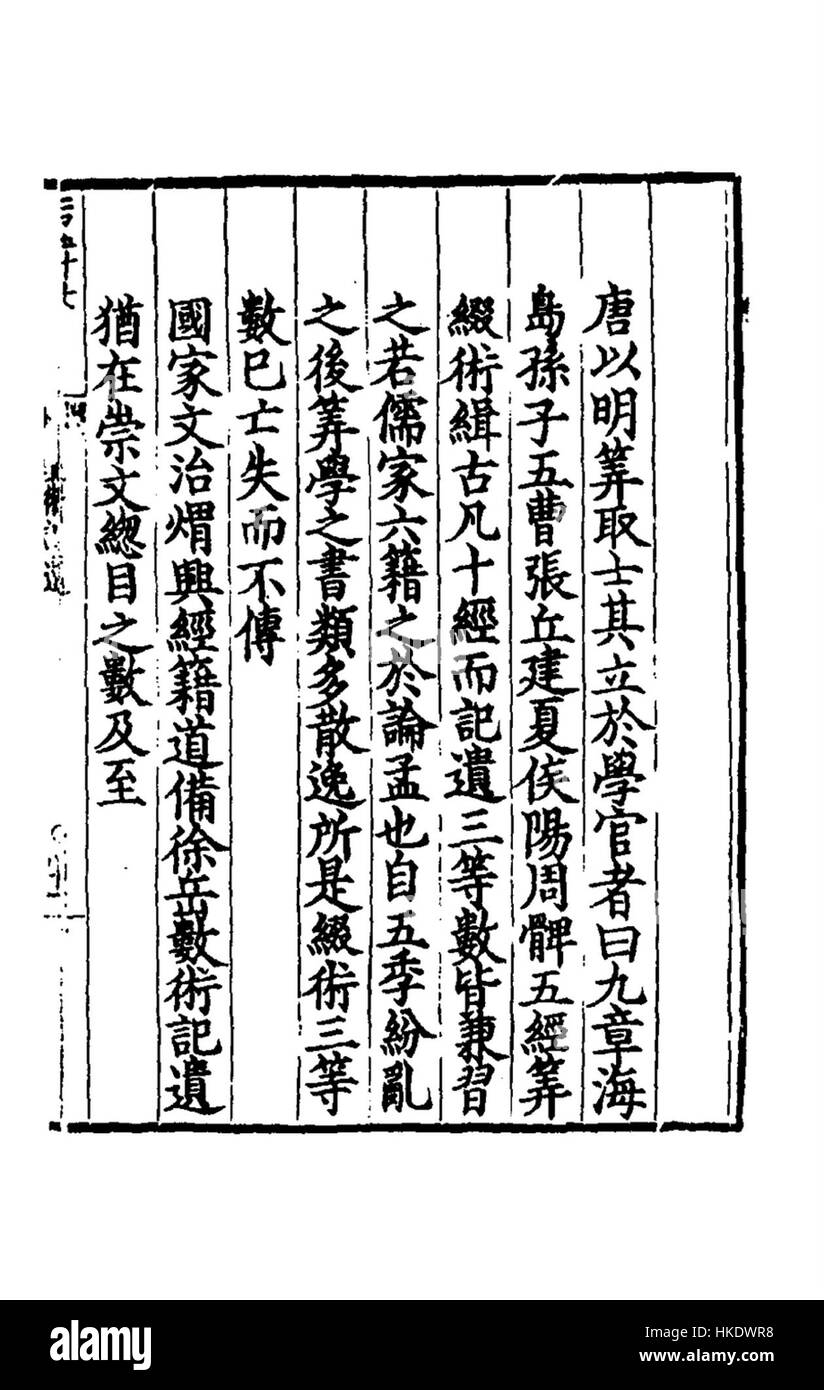 唐以明筭取士其立於學官者曰九章海
島孫子五曹張丘建夏侯陽周髀五經筭
綴術緝古凡十經而記遺三等數皆兼習
之若儒家六籍之於論孟也自五季紛亂
之後筭學之書類多散逸所是綴術三等
數已亡失而不傳
國家文治煟興經籍道備徐岳數術記遺
猶在崇文緫目之數及至
alamy
Image ID: HKDWR8
www.alamy.com